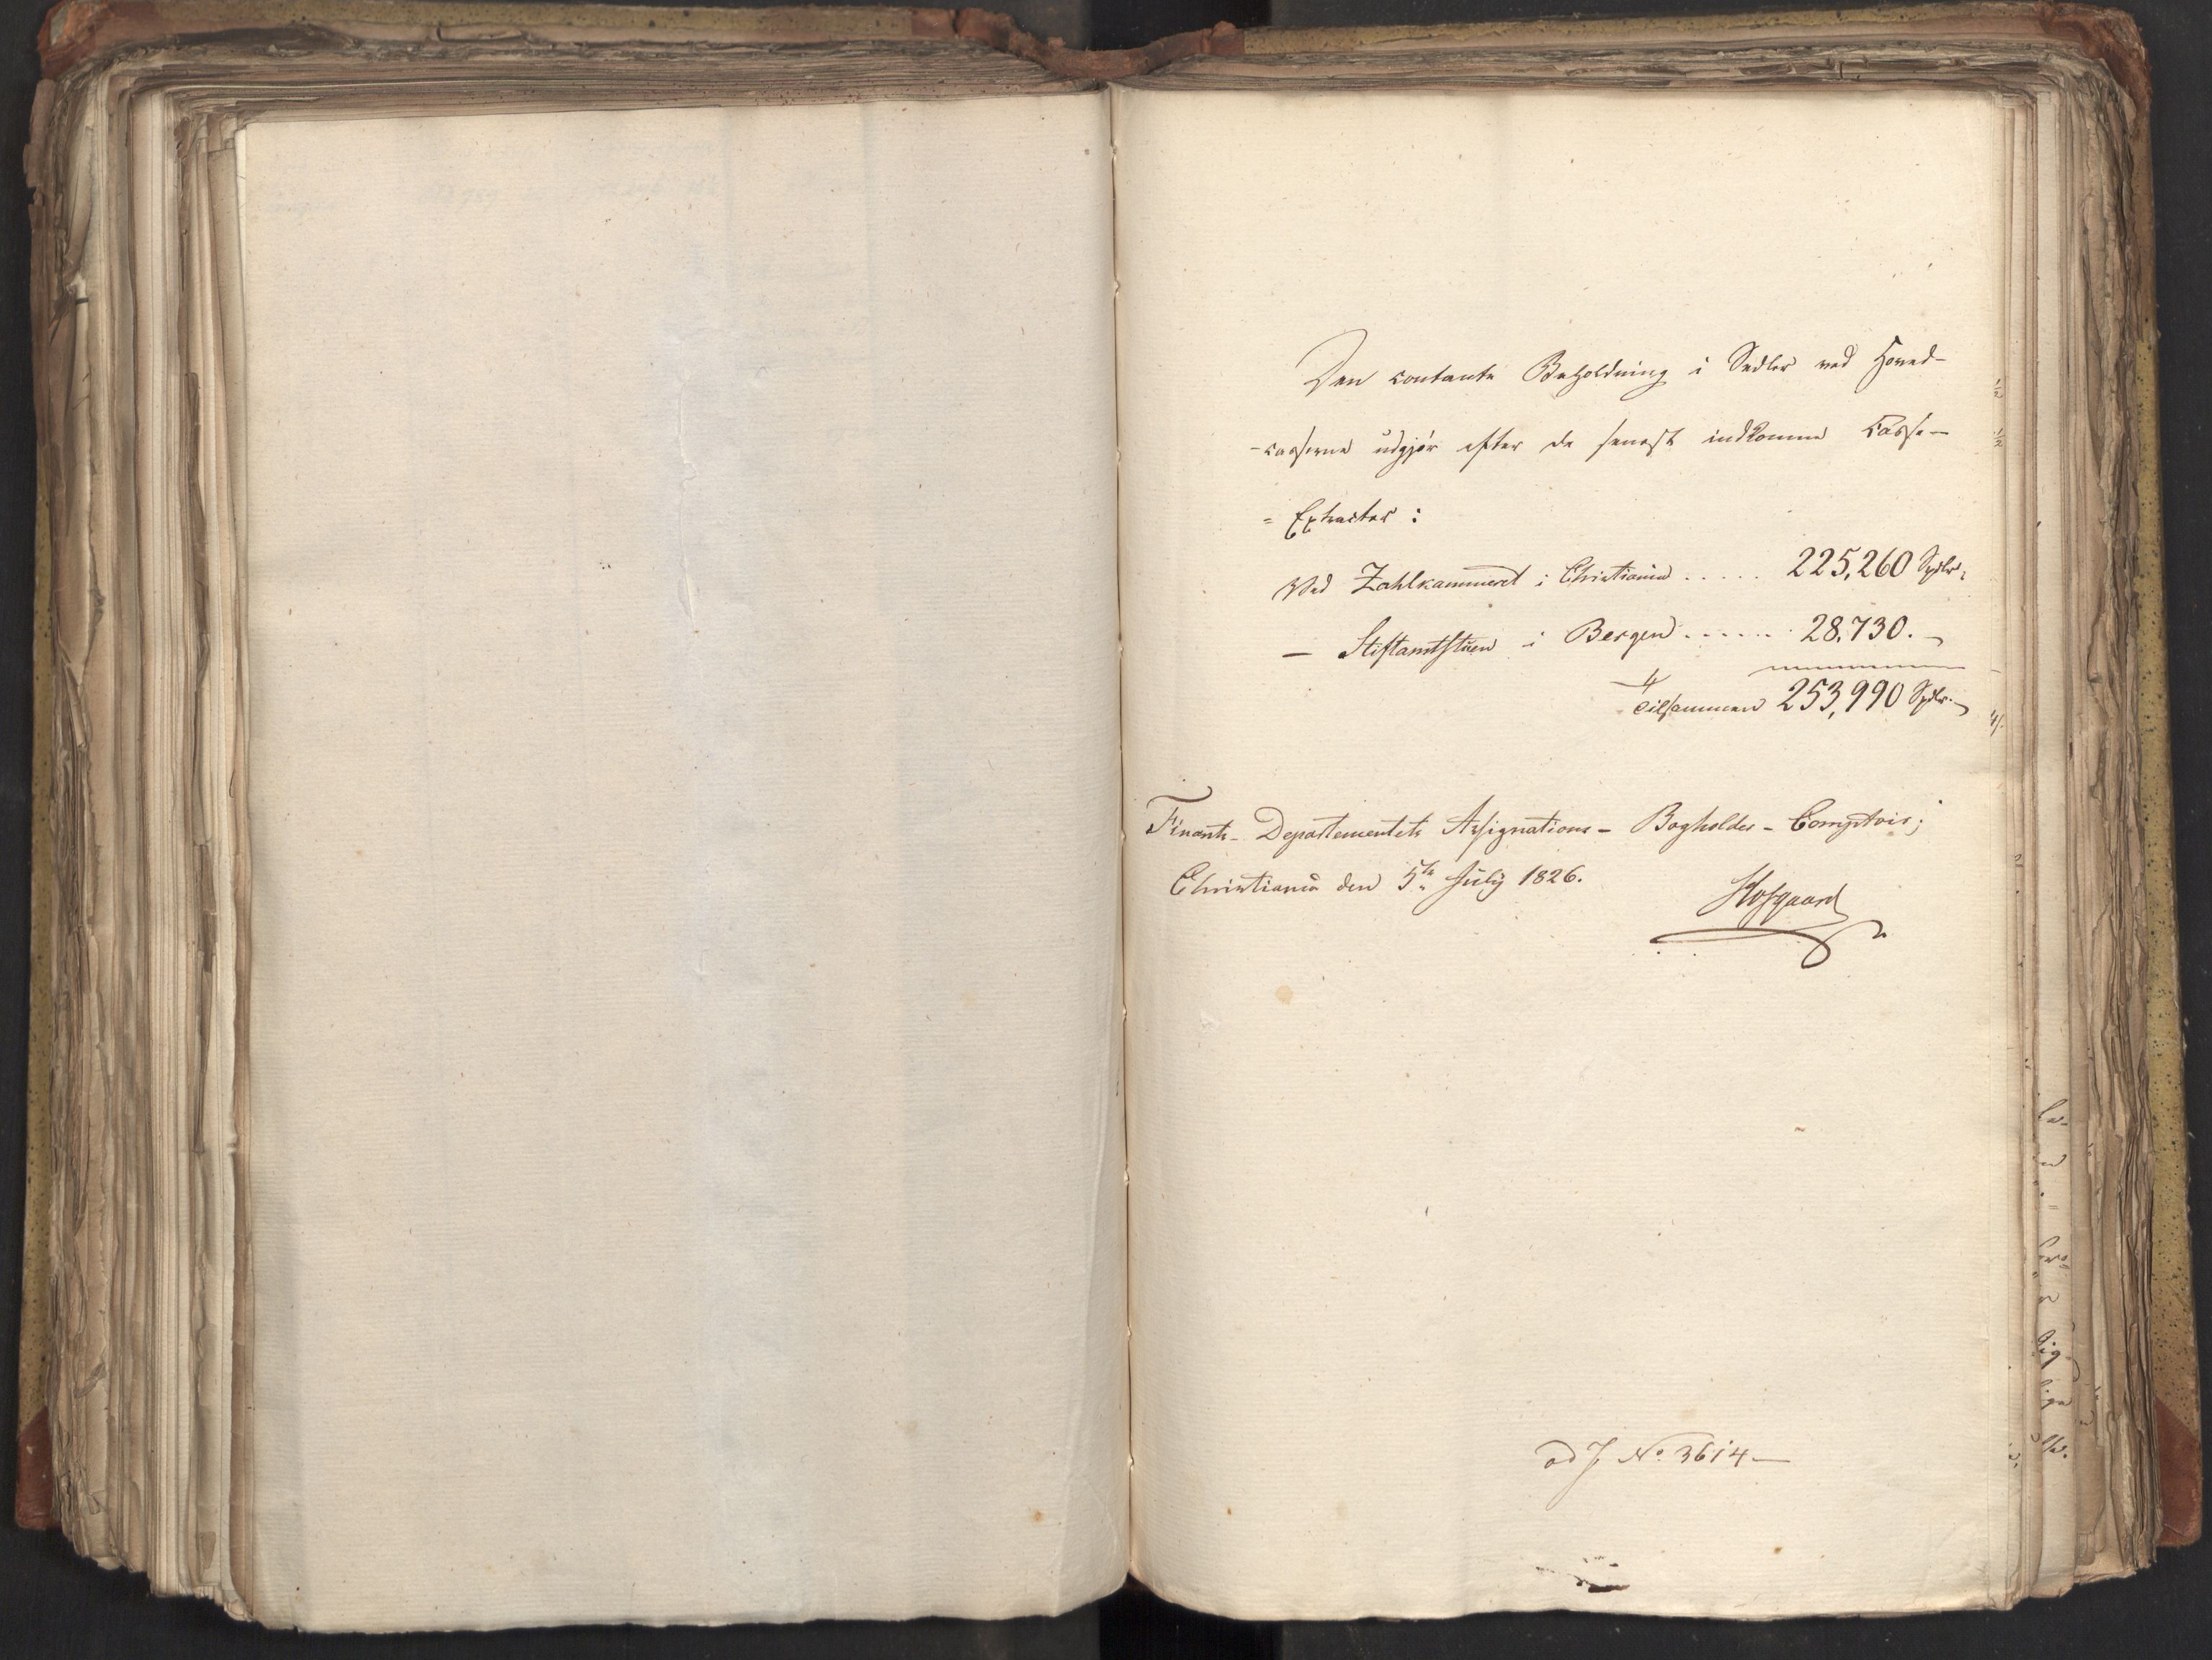 Den contante Beholdning i Sedler ved Hoved-
-casserne udgjør efter de senest indkomne Casse-
= Extracter :
Ved Zahlkammeret i Christiania ..... 225,260 Spdlr,
— Stiftamtstuen i Bergen ...... 28,730. -
Tilsammen 253,990 Spdlr. -
Finants-Departementets Assignations- Bogholder-Comptoir;
Christiania den 5te July 1826.
ad J. No. 3614—